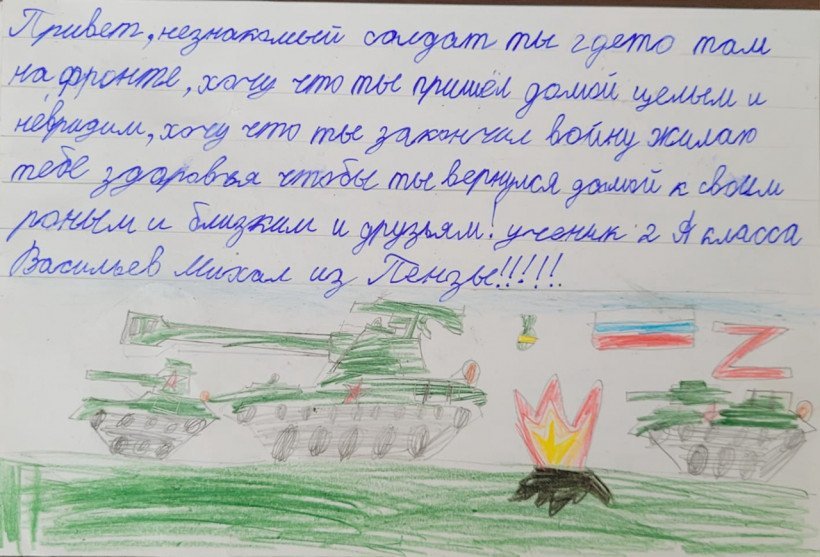 Привет, незнакомый солдат ты гдето там
на фронте, хочу что ты пришёл домой целым и
невридим, хочу что ты закончил войну жилаю
тебе здоровья чтобы ты вернулся домой к своим
роным и близким и друзьям! ученик 2 Я класса
Васильев Михал из Пензы!!!!!
Z